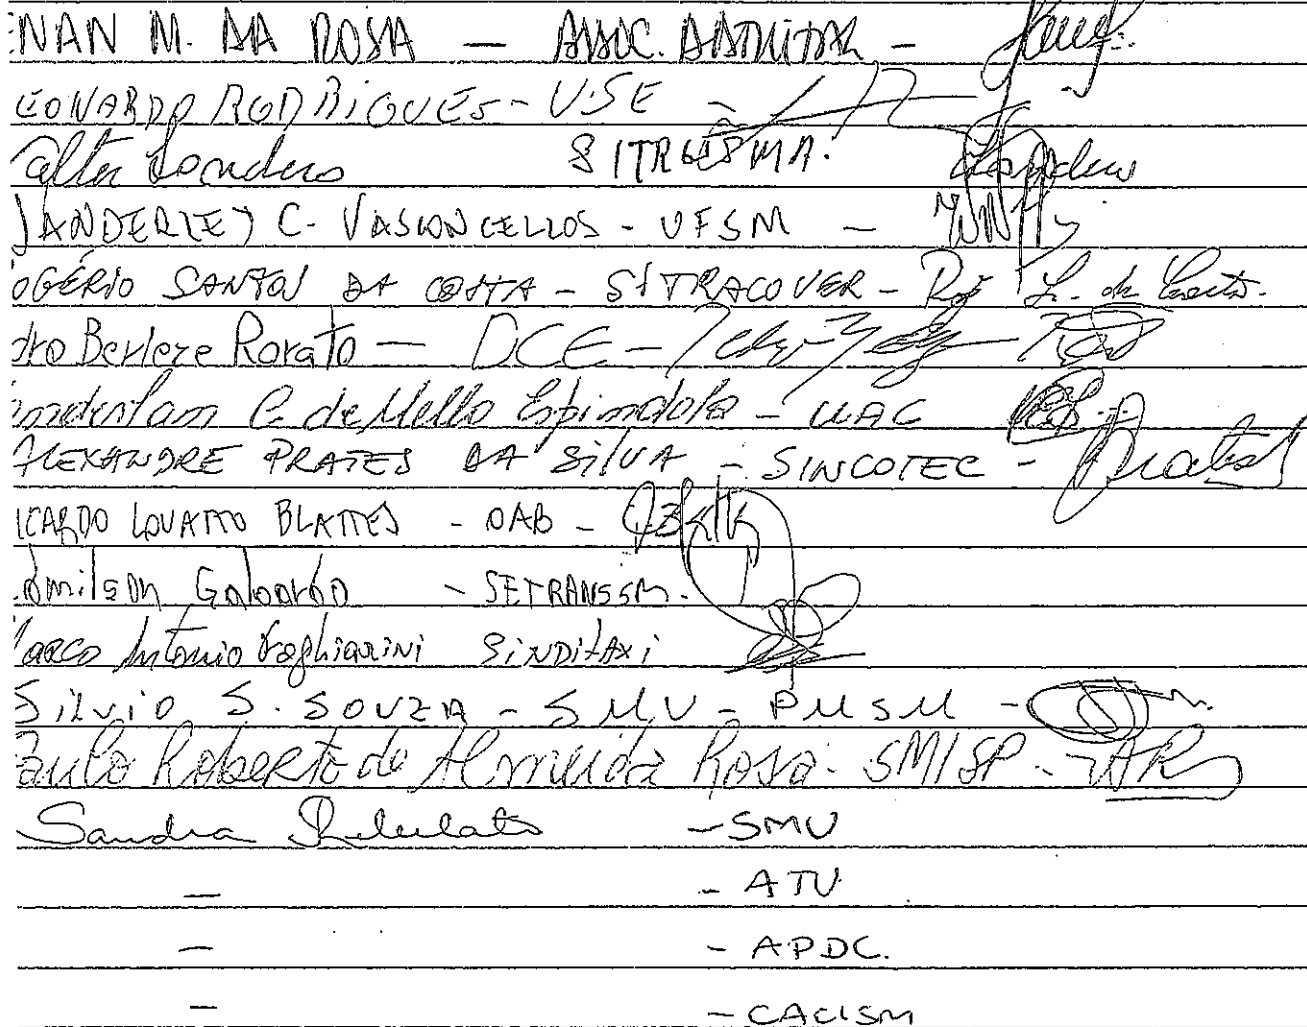 ENAN M. DA ROSA — ASSOC. -
EONARDO RODRIGUES - USE -
alter Londero SITRGSMA. Londero
VANDERLEY C. VASCONCELLOS - UFSM —
OGÉRIO SANTOS DA COSTA - SITRACOVER - Rog S. da Costa.
dro Berleze Rorato — DCE -
C. de Mello Espindola - UAC
ALEXANDRE PRATES DA SILVA - SINCOTEC - Prates
ICARDO LOVATTO BLATTES - OAB -
dmilson Gabardo - SETRANSSM.
arco Antonio SINDITAXI
SILVIO S. SOUZA - SMU - PMSM -
Paulo Roberto de Almeida Rosa - SMISP -
Sandra - SMU
— - ATU
— - APDC.
— - CACISM